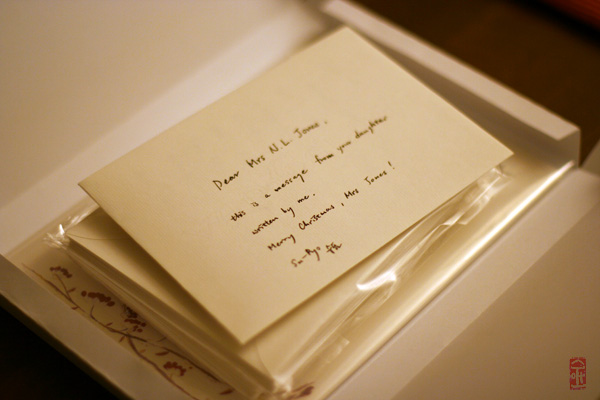 Dear Mrs N.L. Jones,
this is a message from your daughter
written by me.
Merry Christmas, Mrs Jones!
Su-Ryo